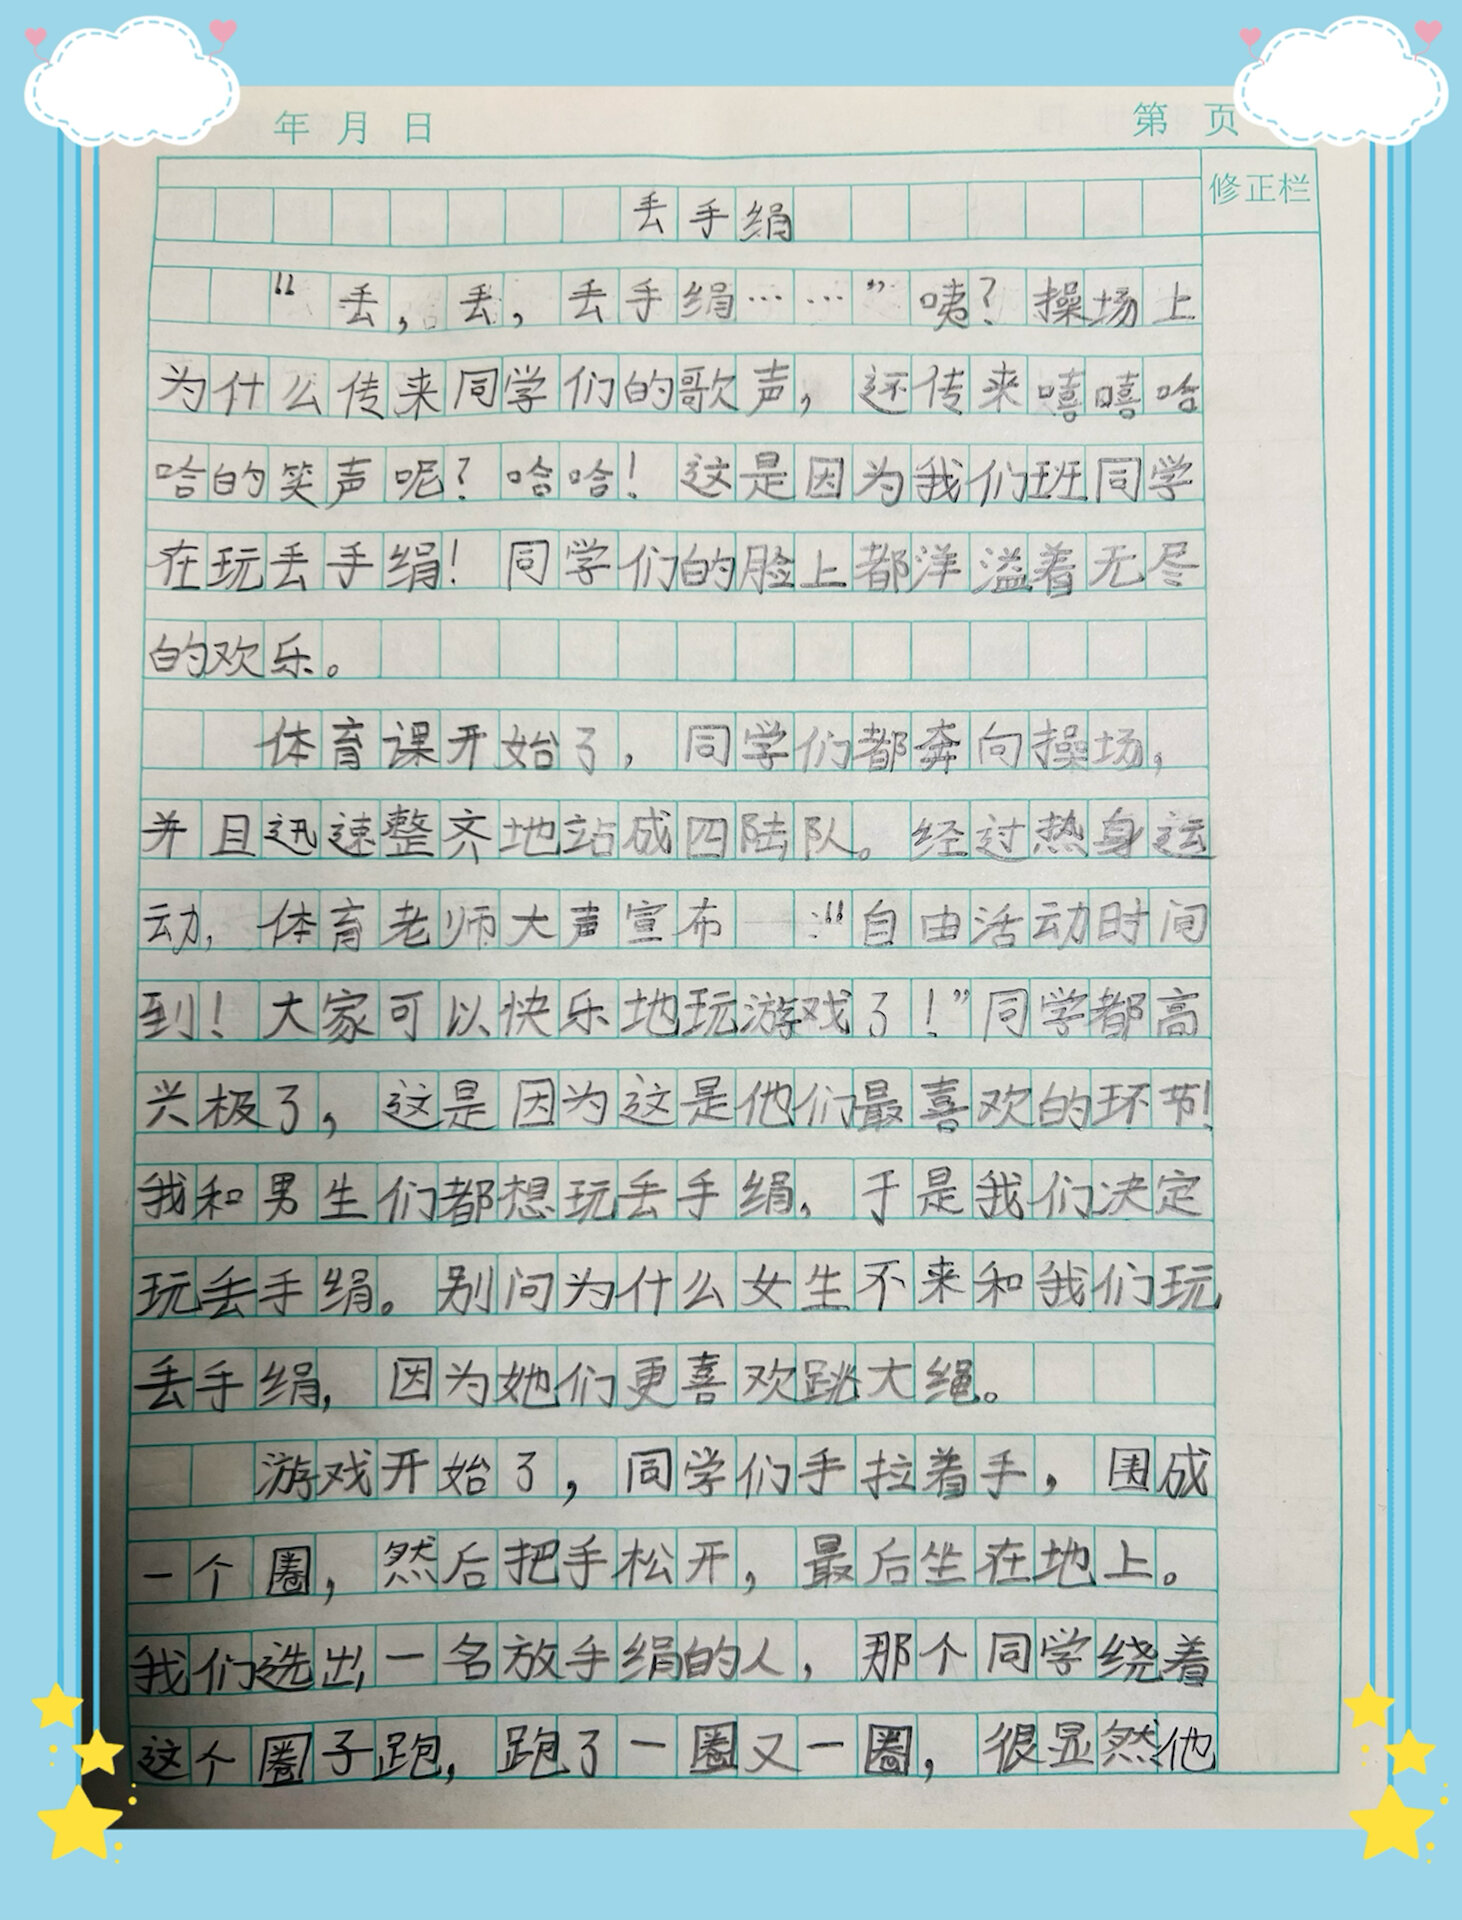 年 月 日
第 页
修正栏
丢手绢
“丢，丢，丢手绢……”咦？操场上
为什么传来同学们的歌声，还传来嘻嘻哈
哈的笑声呢？哈哈！这是因为我们班同学
在玩丢手绢！同学们的脸上都洋溢着无尽
的欢乐。
体育课开始了，同学们都奔向操场，
并且迅速整齐地站成四陆队。经过热身运
动，体育老师大声宣布：“自由活动时间
到！大家可以快乐地玩游戏了！”同学都高
兴极了，这是因为这是他们最喜欢的环节！
我和男生们都想玩丢手绢，于是我们决定
玩丢手绢。别问为什么女生不来和我们玩
丢手绢，因为她们更喜欢跳大绳。
游戏开始了，同学们手拉着手，围成
一个圈，然后把手松开，最后坐在地上。
我们选出一名放手绢的人，那个同学绕着
这个圈子跑，跑了一圈又一圈，很显然他